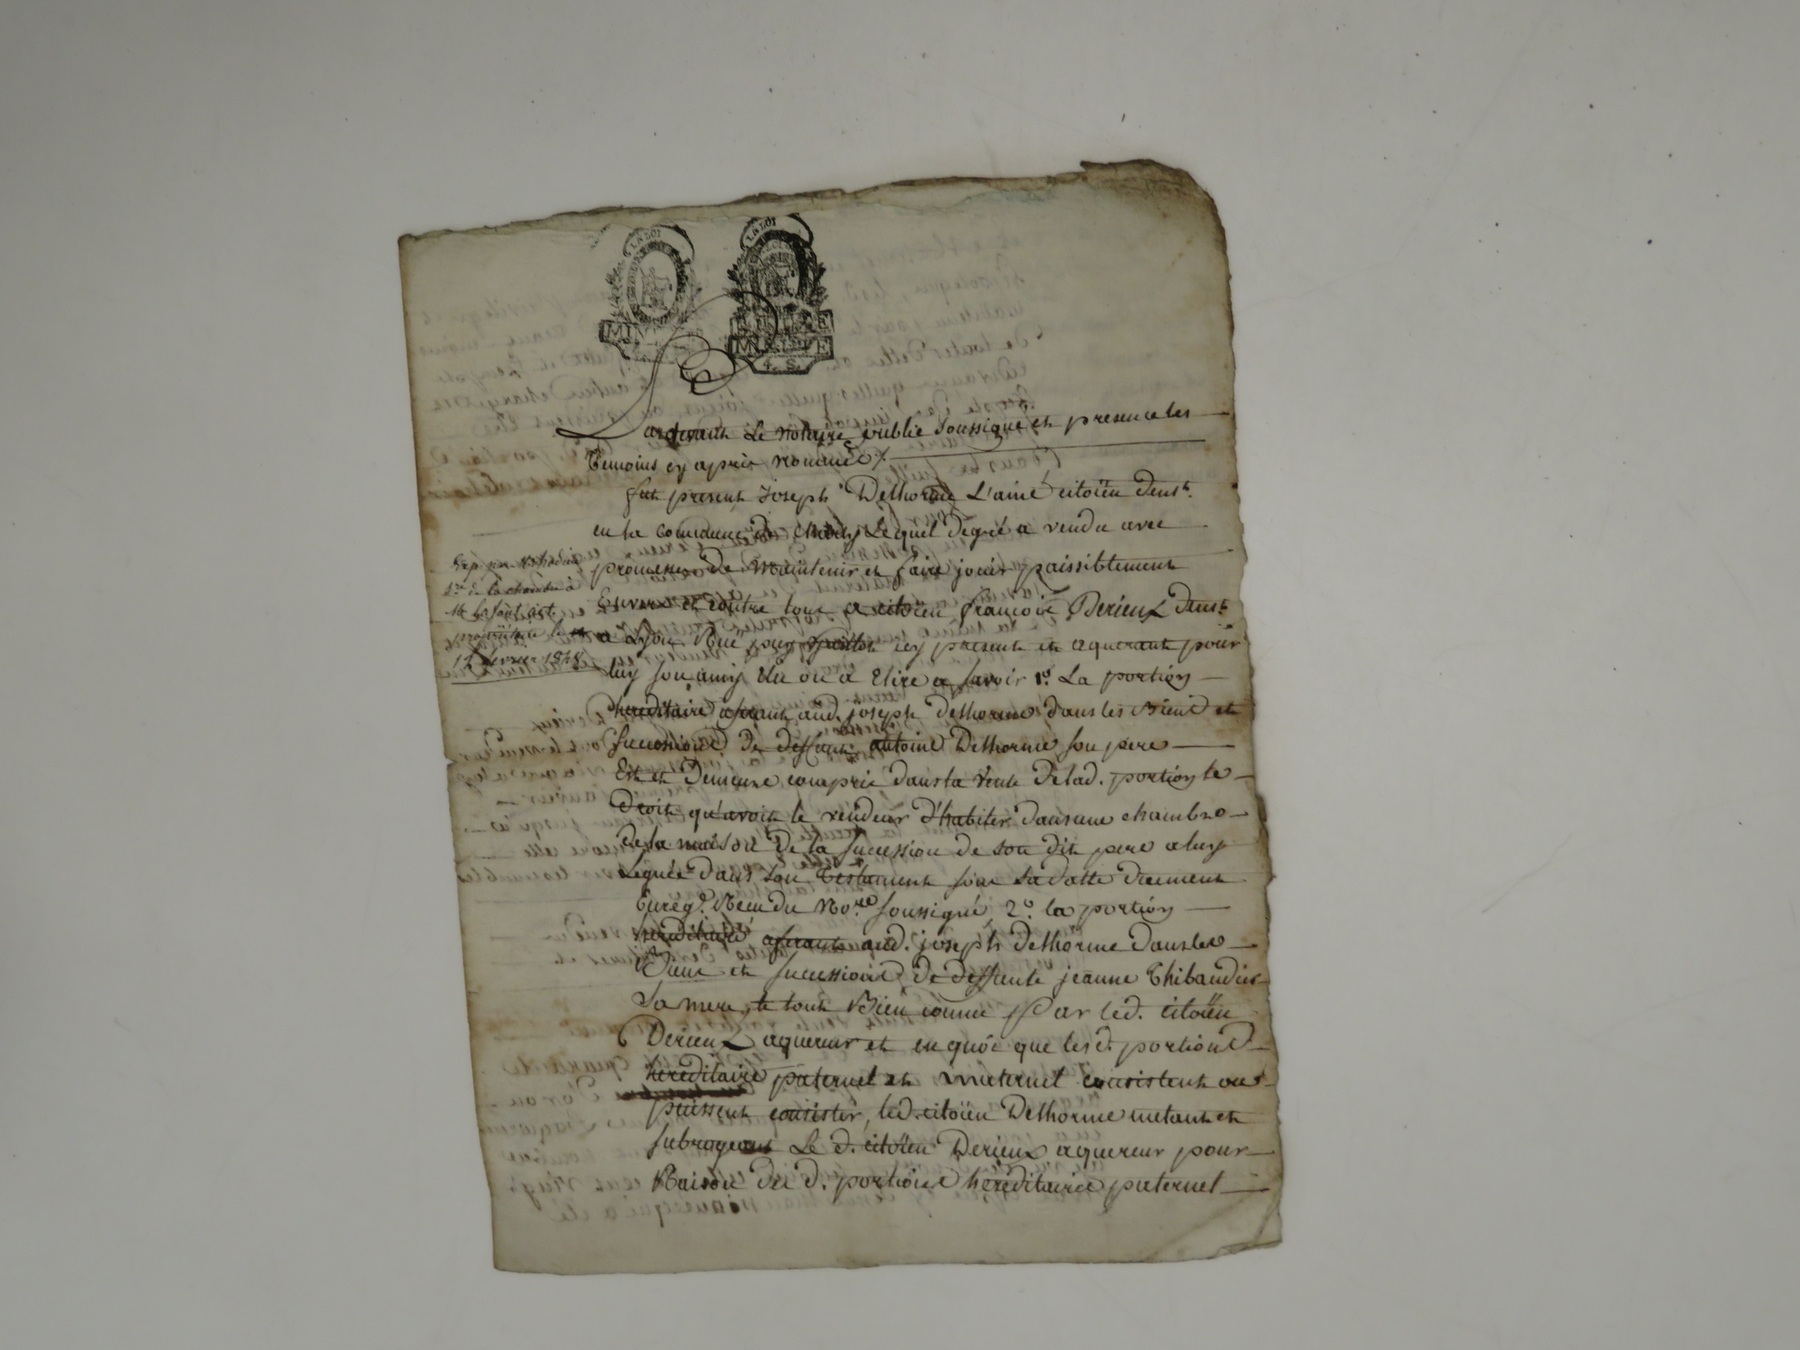 LA LOI
LA LOI
MIN
MINUTE
4. S.
Pardevant Le notaire publie Soussigné et presence les
Temoins cy après nommée /.
fut present Joseph Delhorme L'ainé citoïen demt.
en la commune de Lequel degré a vendu avec
promesse de maintenir et faire jouir paissiblement
Envers et contre tous a citoïen françois Derieux demt.
a Lyon Rue puy cy present et aquerant pour
luy son amy élu ou a Elire a savoir 1º. La portion
hereditaire aferant aud. joseph Delhorme dans les Biens et
successions de deffunt antoine Delhorme son pere
Est et Demeure comprie dans la vente De lad. portion le
Droit qu'avoit le vendeur D'habiter dans une chambre
de la maison De la succession de son dit pere a luy
Leguée dans son Testament sous sa datte Duement
Enregé. Recu du Nore. soussigné, 2º. la portion
hereditaire aferante aud. joseph Delhorme dans les
Biens et successions de deffunte jeanne Thibaudier
Sa mere, le tout Bien connu Par led. citoïen
Derieux aquereur et en quoi que les d. portions
hereditaire paternel et maternel consistent ou
puissent consister, led. citoïen Delhorme metant et
subrogeant Le d. citoïen Derieux aquereur pour
Raison du d. portions héréditairee paternel
de la chambre à